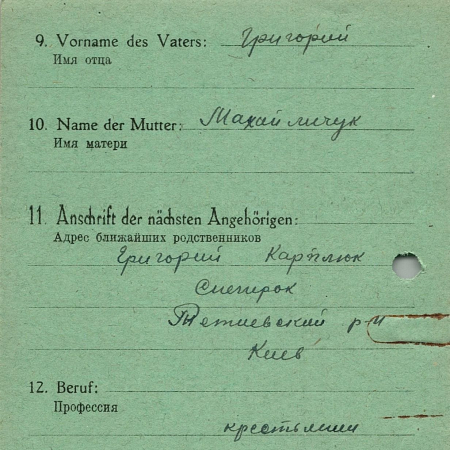 9. Vorname des Vaters: Григорий
Имя отца
10. Name der Mutter: Махайличук
Имя матери
11. Anschrift der nächsten Angehörigen:
Адрес ближайших родственников
Григорий Карплюк
Снегирок
Тетиевский р-н
Киев
12. Beruf:
Профессия
крестьянин